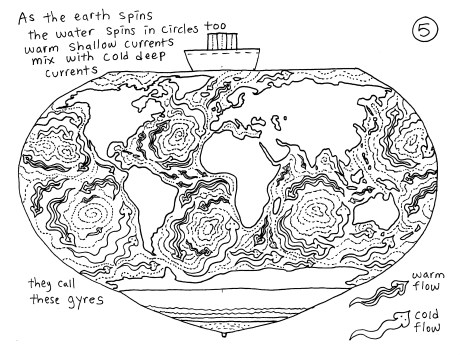 As the earth spins
the water spins in circles too
warm shallow currents
mix with cold deep
currents
5
they call
these gyres
warm
flow
cold
flow